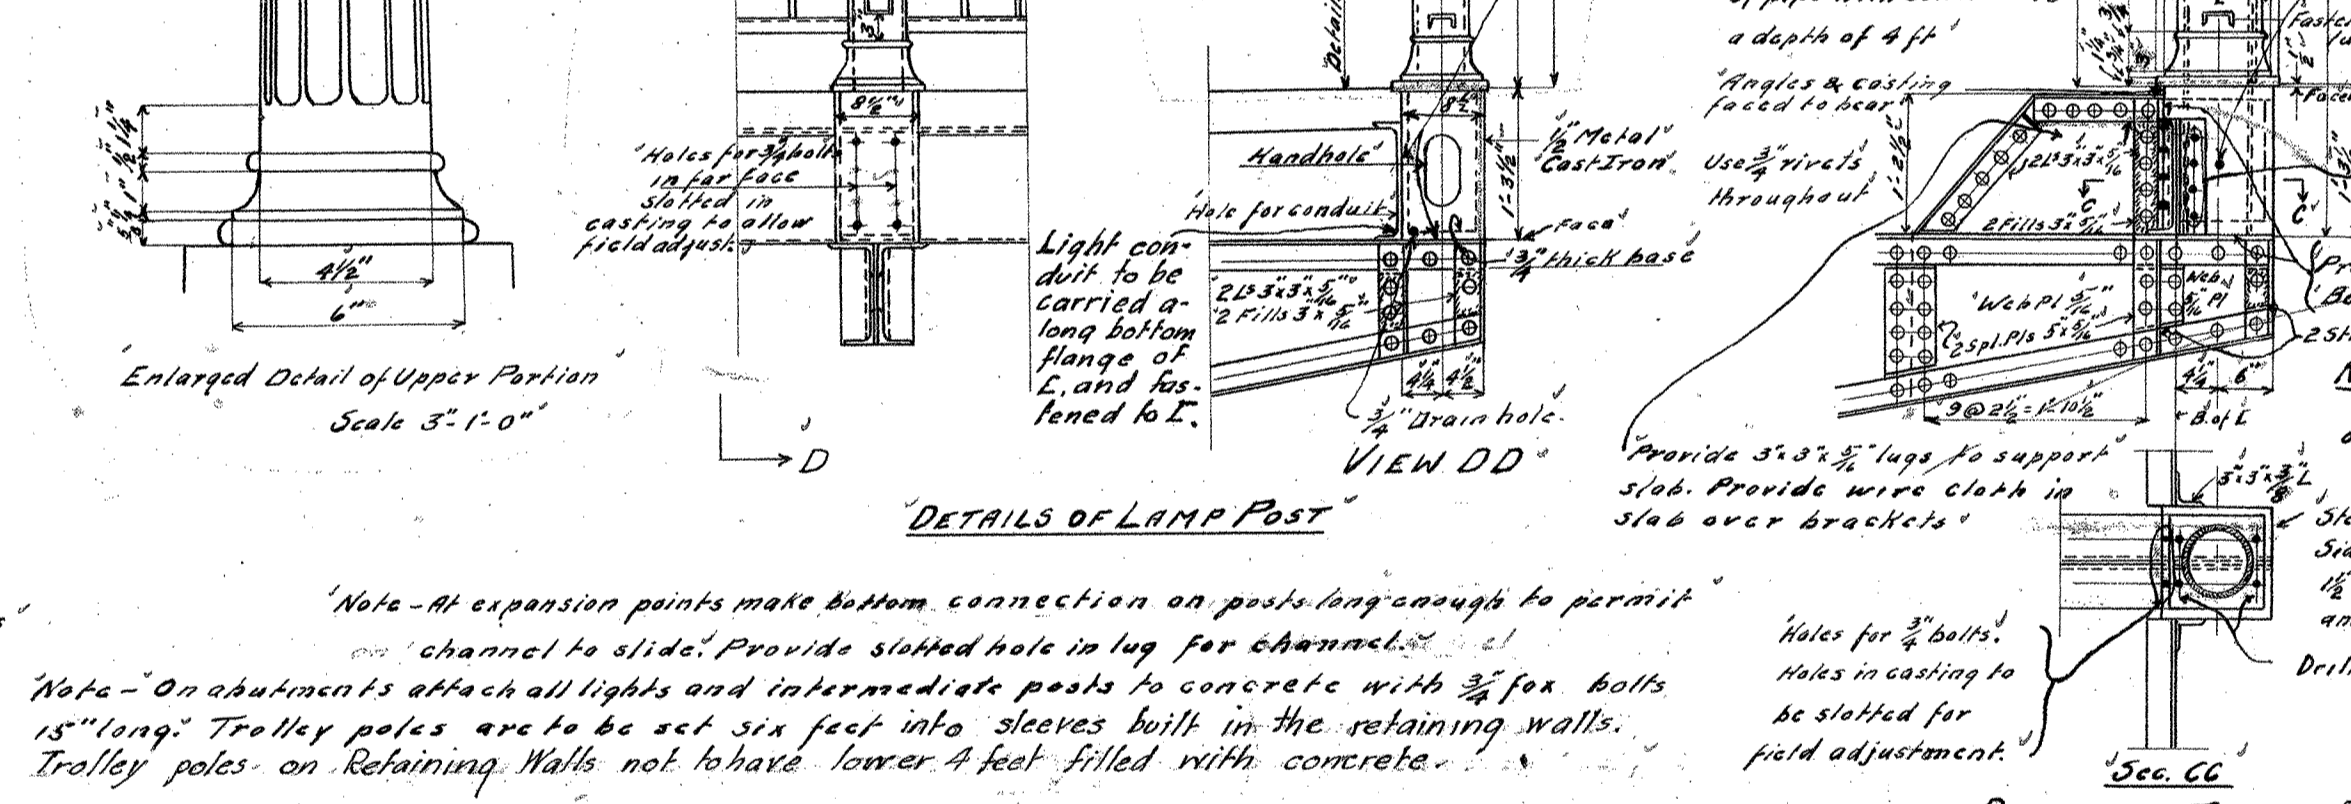 1/4"
1/2"
1"
5/8"
4 1/2"
6"
Enlarged Detail of Upper Portion
Scale 3"-1'-0"
3"
8 1/2"
Holes for 3/4 bolts
in far face
slotted in
casting to allow
field adjust.
D
Detail
8 1/2"
Handhole
1/2" Metal
Cast Iron.
1'-3 1/2"
Hole for conduit
Face
3/4" thick base
Light con-
duit to be
carried a-
long bottom
flange of
[, and fas-
tened to [.
2 Ls 3"x3"x5/16"
2 Fills 3"x5/16"
4 1/4" 4 1/2"
3/4" Drain hole.
VIEW DD
DETAILS OF LAMP POST
a depth of 4 ft
Angles & casting
faced to bear
Use 3/4" rivets
throughout
1'-2 1/2"
2 Ls 3"x3"x5/16"
2 Fills 3"x5/16"
C
C
Web Pl 5/16"
Web
5/16" Pl
2 Spl. Pls 5"x5/16"
4 1/4" 6"
9 @ 2 1/2" = 1'-10 1/2"
B. of [
Provide 3"x3"x5/16" lugs to support
slab. Provide wire cloth in
slab over brackets
3"x3"x3/8" L
Holes for 3/4" bolts.
Holes in casting to
be slotted for
field adjustment.
Sec. CC
Note - At expansion points make bottom connection on posts long enough to permit
channel to slide. Provide slotted hole in lug for channel.
Note - On abutments attach all lights and intermediate posts to concrete with 3/4" fox bolts
15" long. Trolley poles are to be set six feet into sleeves built in the retaining walls.
Trolley poles on Retaining Walls not to have lower 4 feet filled with concrete.